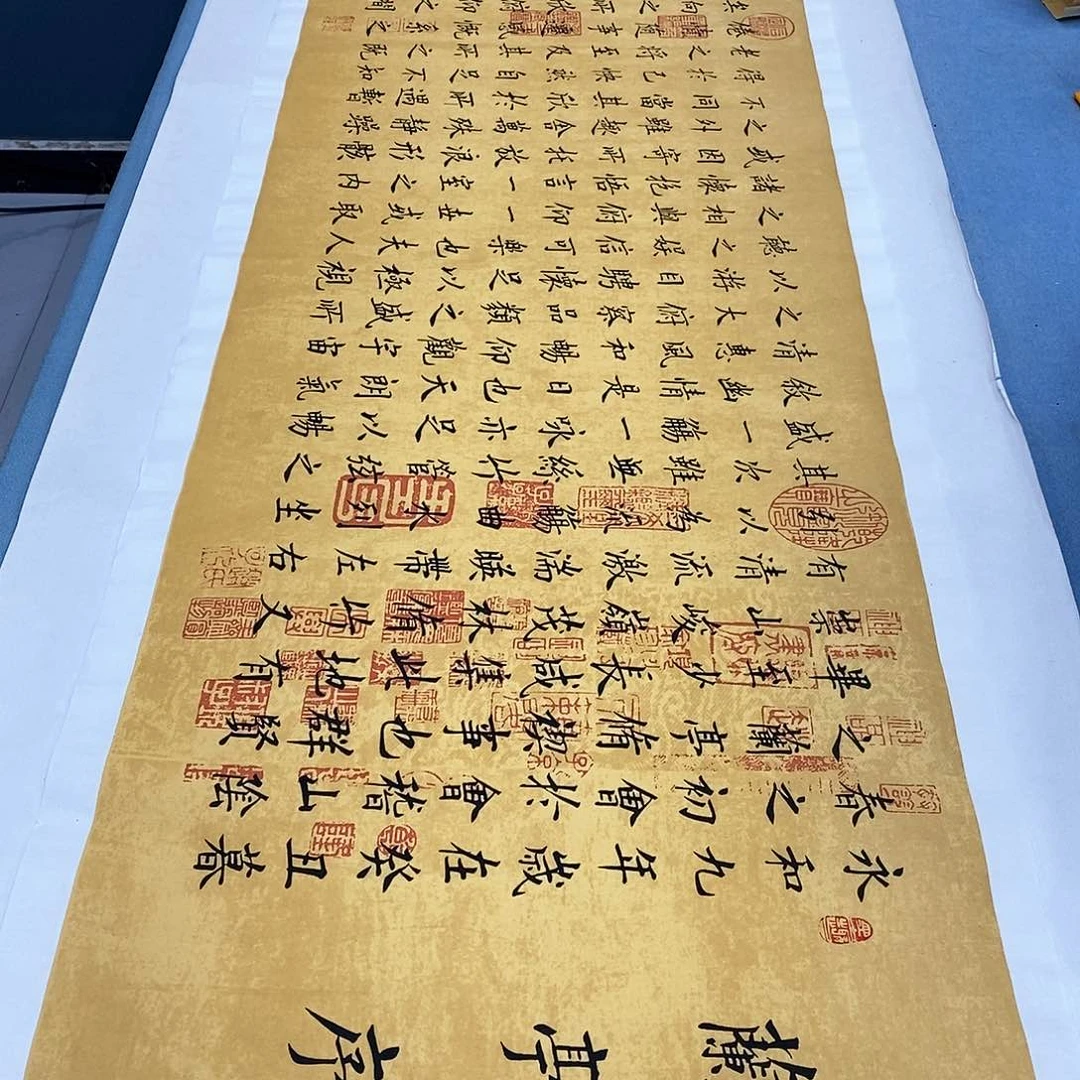 蘭亭序
永和九年歲在癸丑暮
春之初會於會稽山陰
之蘭亭脩禊事也群賢
畢至少長咸集此地有
崇山峻嶺茂林脩竹又
有清流激湍映帶左右
引以為流觴曲水列坐
其次雖無絲竹管弦之
盛一觴一詠亦足以暢
敘幽情是日也天朗氣
清惠風和暢仰觀宇宙
之大俯察品類之盛所
以游目騁懷足以極視
聽之娛信可樂也夫人
之相與俯仰一世或取
諸懷抱悟言一室之內
或因寄所托放浪形骸
之外雖趣舍萬殊靜躁
不同當其欣於所遇暫
得於己快然自足不知
老之將至及其所之既
倦情隨事遷感慨係之
矣向之所欣俯仰之間